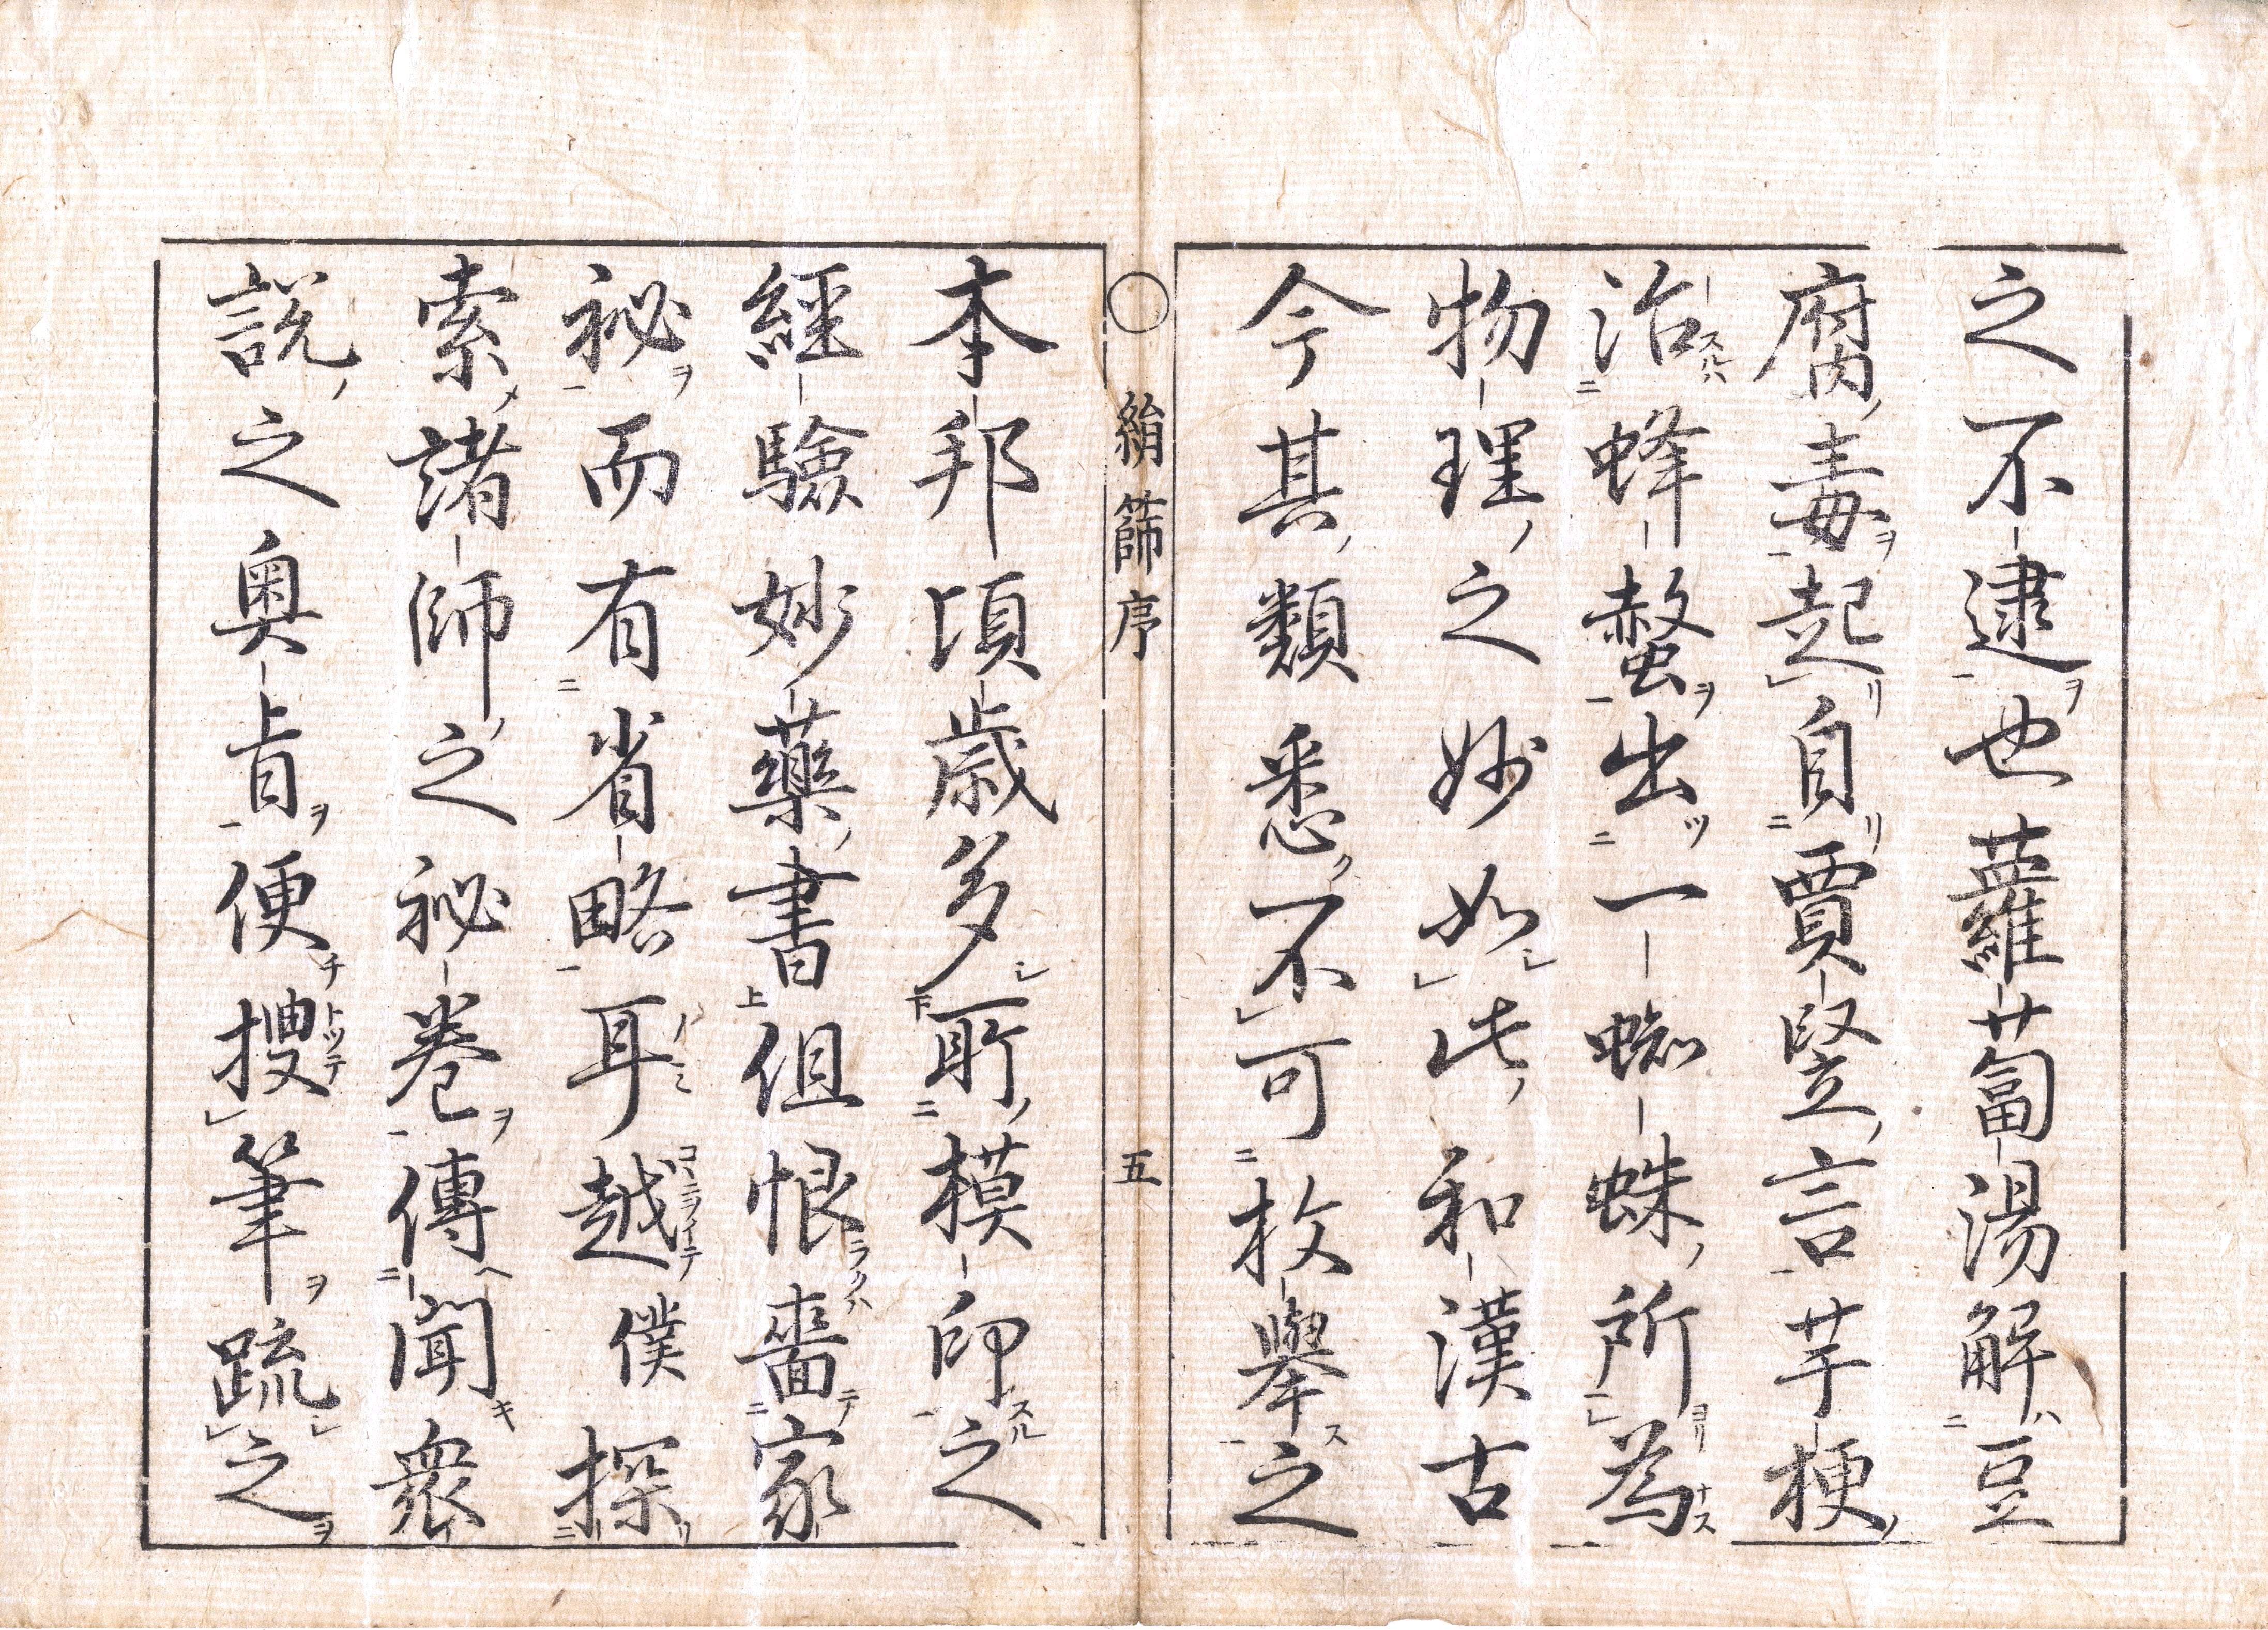 之不逮也蘿蔔湯解豆
腐毒起自賈豎言芋梗
治蜂螫出一蜘蛛所為
物理之妙如此和漢古
今其類悉不可枚擧之
絹篩序 五
本邦頃歳多所模印之
經驗妙藥書但恨嗇家
秘而有省略耳越僕探
索諸師之秘卷傳聞衆
説之奥旨便搜筆疏之